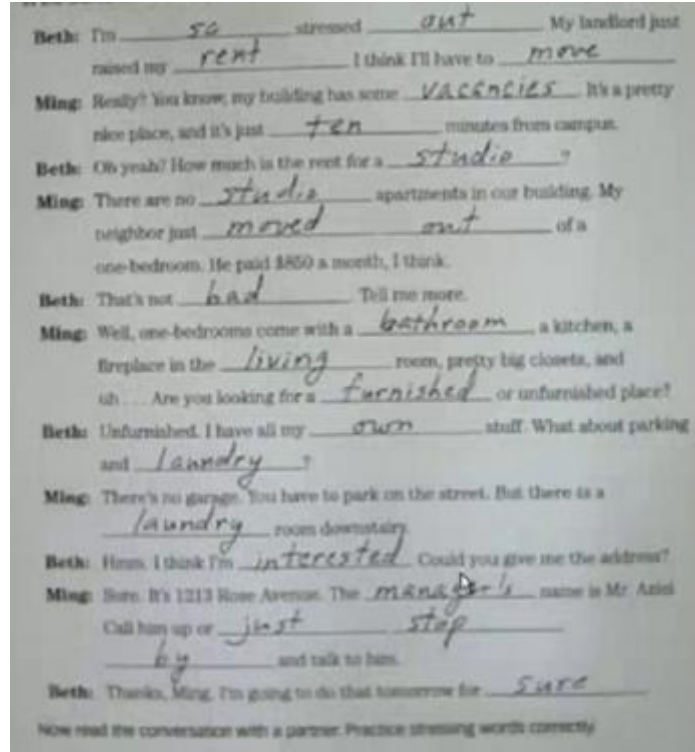 Beth: I'm so stressed out. My landlord just
raised my rent. I think I'll have to move
Ming: Really? You know, my building has some vacancies. It's a pretty
nice place, and it's just ten minutes from campus.
Beth: Oh yeah? How much is the rent for a studio?
Ming: There are no studio apartments in our building. My
neighbor just moved out of a
one-bedroom. He paid $850 a month, I think.
Beth: That's not bad. Tell me more.
Ming: Well, one-bedrooms come with a bathroom, a kitchen, a
fireplace in the living room, pretty big closets, and
uh . . . Are you looking for a furnished or unfurnished place?
Beth: Unfurnished. I have all my own stuff. What about parking
and laundry?
Ming: There's no garage. You have to park on the street. But there is a
laundry room downstairs.
Beth: Hmm. I think I'm interested. Could you give me the address?
Ming: Sure. It's 1213 Rose Avenue. The manager's name is Mr. Azizi
Call him up or just stop
by and talk to him.
Beth: Thanks, Ming. I'm going to do that tomorrow for sure
Now read the conversation with a partner. Practice stressing words correctly.